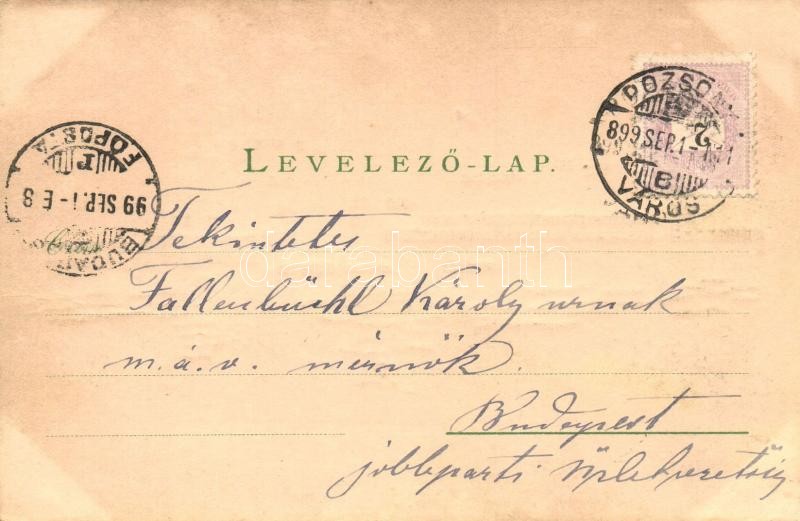 LEVELEZŐ-LAP.
POZSON
899 SEP.1
B
VÁROS
2
BUDAP
99 SEP.1-E.8
FŐPOSTA
darabanth
Tekintetes
Fallenbüchl Károly urnak
m.á.v. mérnök.
Budapest
jobbparti üzletvezetőség